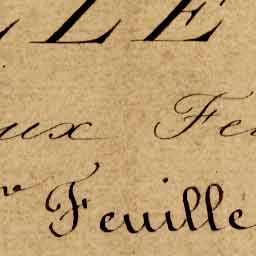 LLE
ux Fe
re Feuille